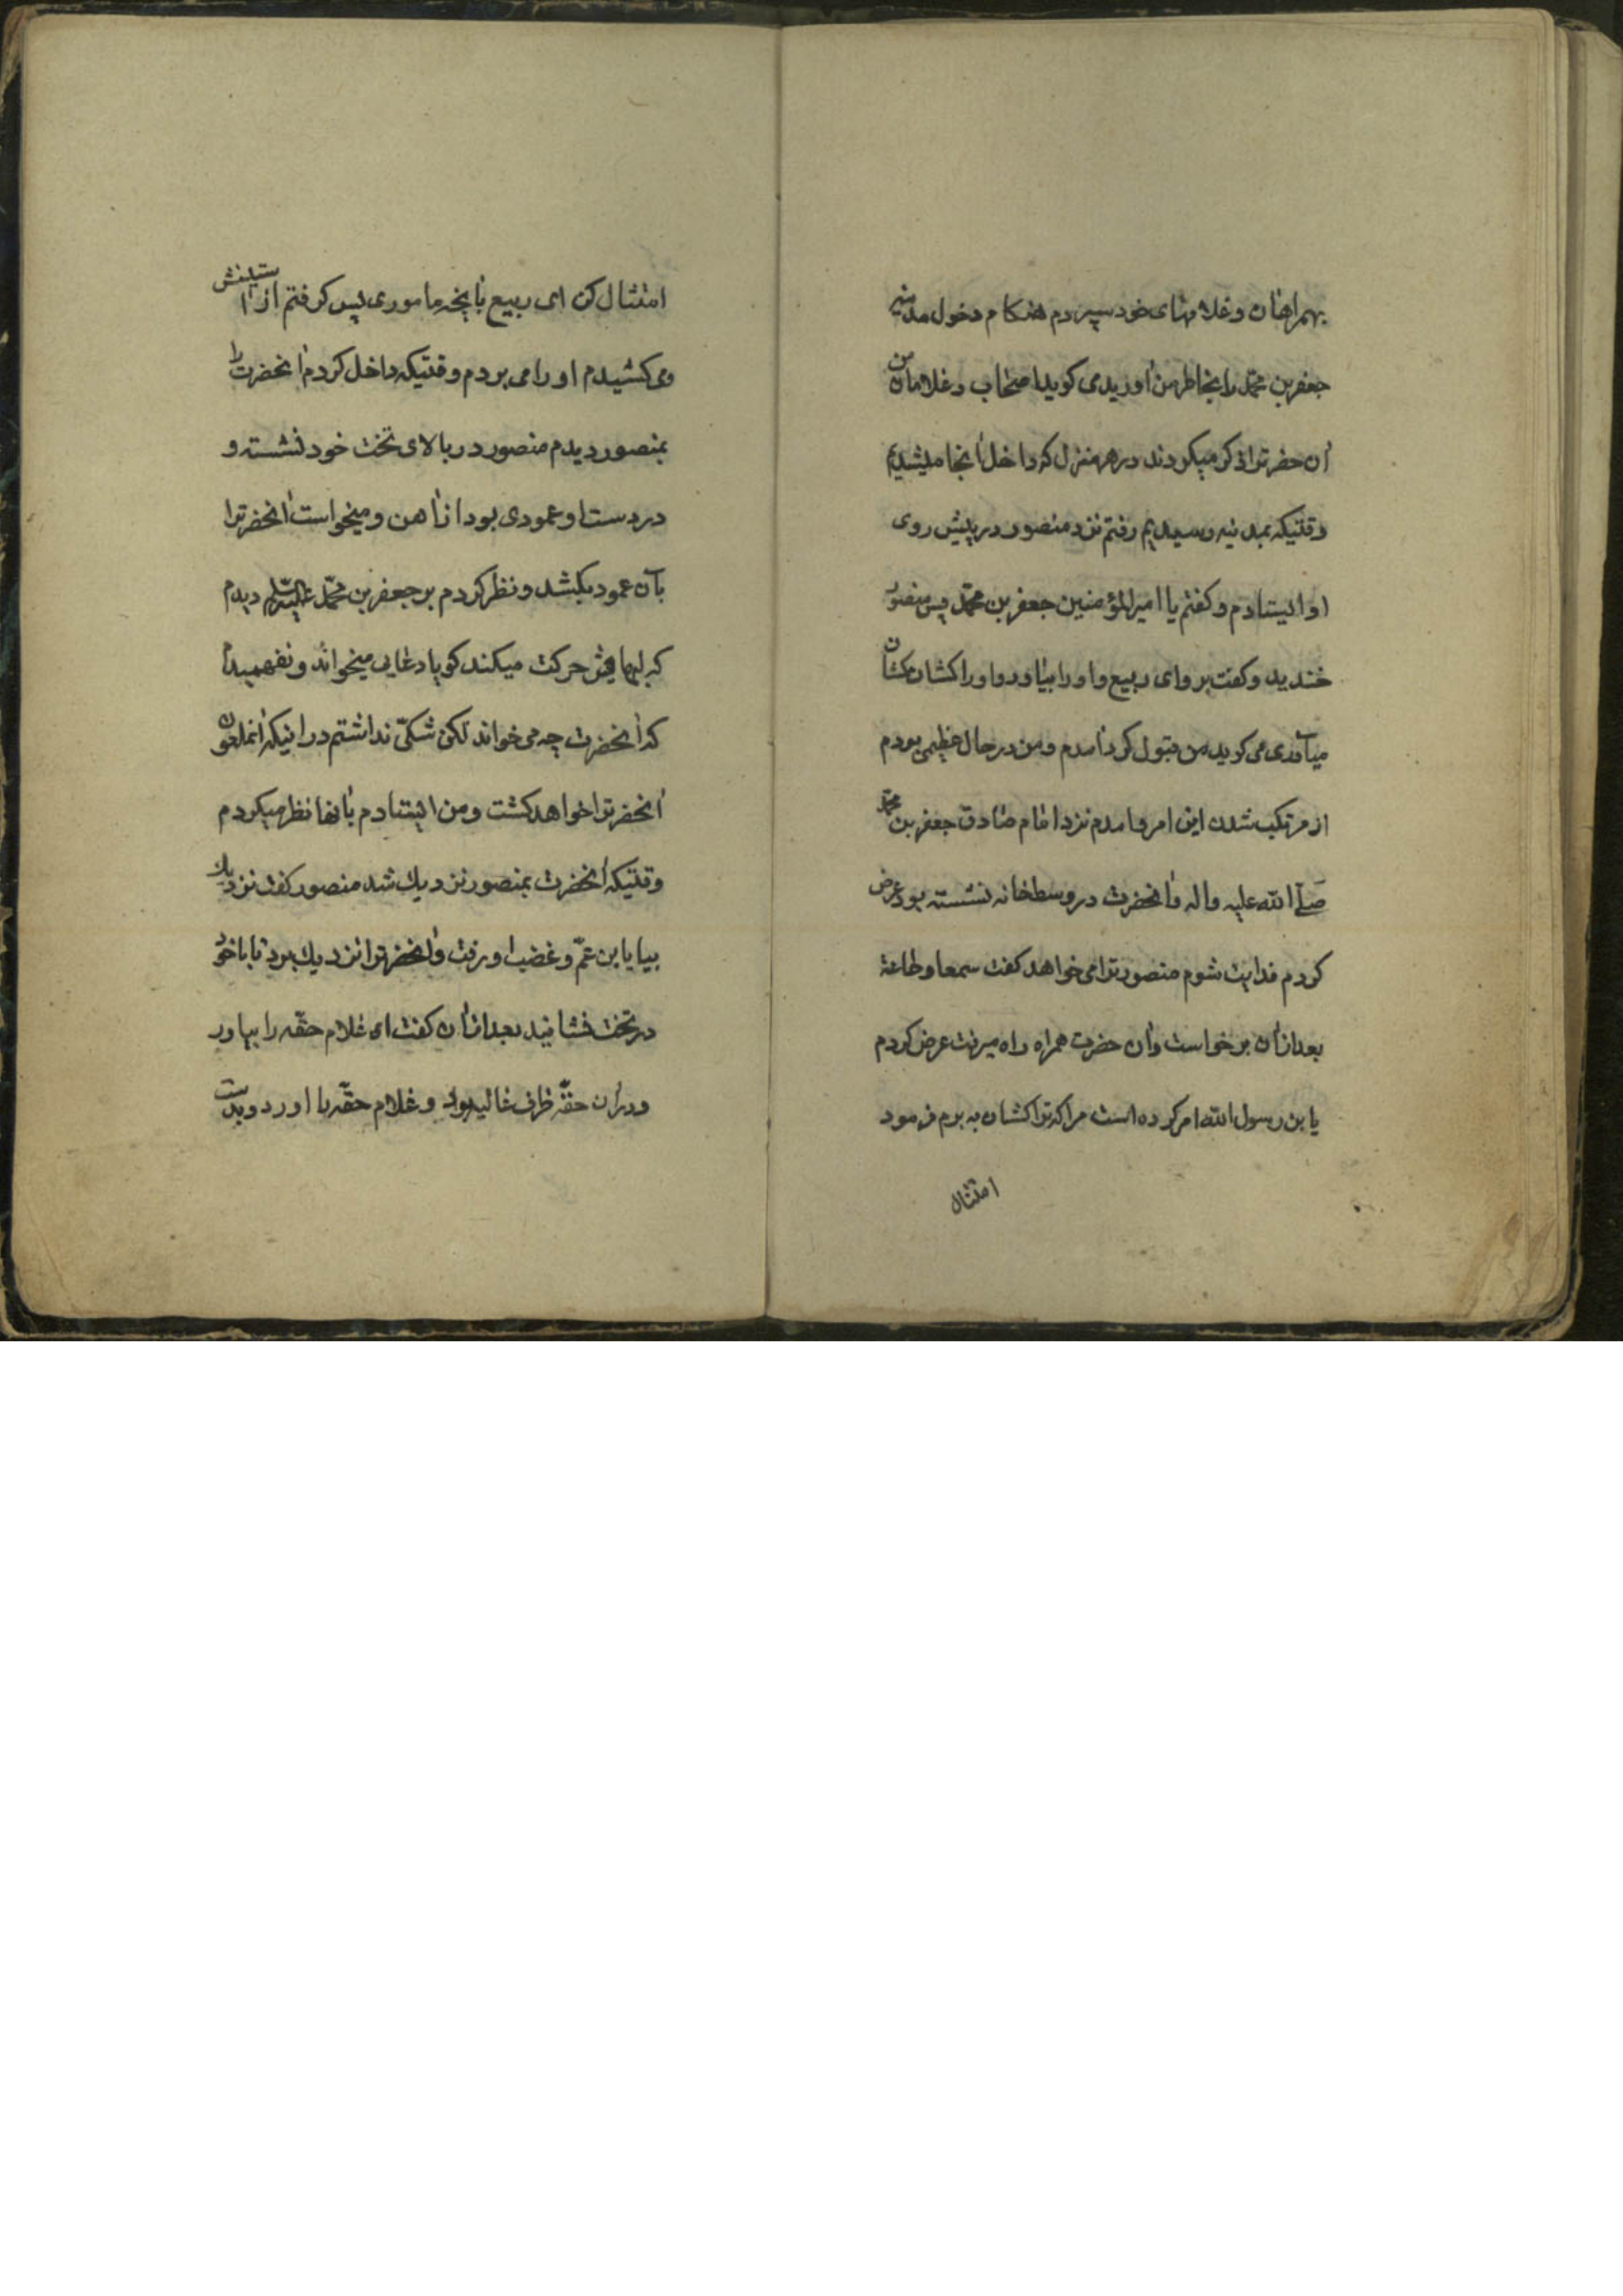 بهمراهان و غلامهای خود سپردم هنکام دخول مدینه
جعفر بن محمّد را بخاطر من آورید می کوید اصحاب و غلامان من
آن حضرترا ذکر میکردند در هر منزل که داخل آنجا میشدیم
وقتیکه بمدینه رسیدیم رفتم نزد منصور در پیش روی
او ایستادم و کفتم یا امیرالمؤمنین جعفر بن محمّد پس منصور
خندید و کفت برو ای ربیع و او را بیاور و او را کشان کشان
میآوری می کوید من قبول کرد آمدم و من در حال عظیمی بودم
از مرتکب شدن این امر و آمدم نزد امام صادق جعفر بن محمّد
صلّی الله علیه واله و آنحضرت در وسط خانه نشسته بود عرض
کردم فدایت شوم منصور ترا می خواهد کفت سمعا وطاعة
بعد از آن برخواست و آن حضرت همراه راه میرفت عرض کردم
یا بن رسول الله امر کرده است مرا که ترا کشان به برم فرمود
امتثال
امتثال کن ای ربیع بآنچه ماموری پس کرفتم از آستینش
می کشیدم او را می بردم وقتیکه داخل کردم آنحضرت را
بمنصور دیدم منصور در بالای تخت خود نشسته و
در دست او عمودی بود از آهن و میخواست آنحضرترا
بآن عمود بکشد و نظر کردم بر جعفر بن محمّد علیه السّلم دیدم
که لبهایش حرکت میکند کویا دعایی میخواند و نفهمیدم
که آنحضرت چه می خواند لکن شکّی نداشتم در اینکه آنملعون
آنحضرترا خواهد کشت و من ایستادم بآنها نظر میکردم
وقتیکه آنحضرت بمنصور نزدیك شد منصور کفت نزدیك
بیا یا بن عمّ و غضب او رفت و آنحضرترا نزدیك برد تا با خود
در تخت نشانید بعد از آن کفت ای غلام حقّه را بیاور
ودر آن حقّه ظرف غالیه بود و غلام حقّه را آورد و بدست